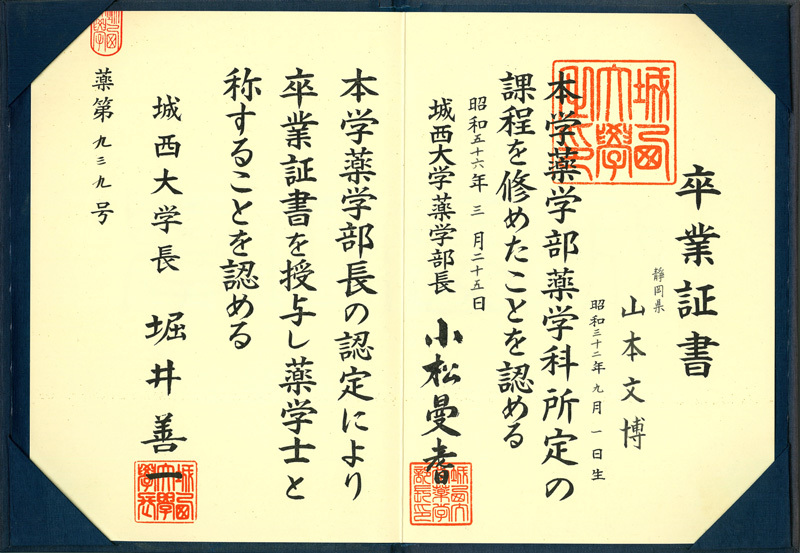 卒業証書
静岡県
山本文博
昭和三十二年九月一日生
本学薬学部薬学科所定の
課程を修めたことを認める
昭和五十六年三月二十五日
城西大学薬学部長
小松曼耆
本学薬学部長の認定により
卒業証書を授与し薬学士と
称することを認める
城西大学長
堀井善一
薬第九三九号